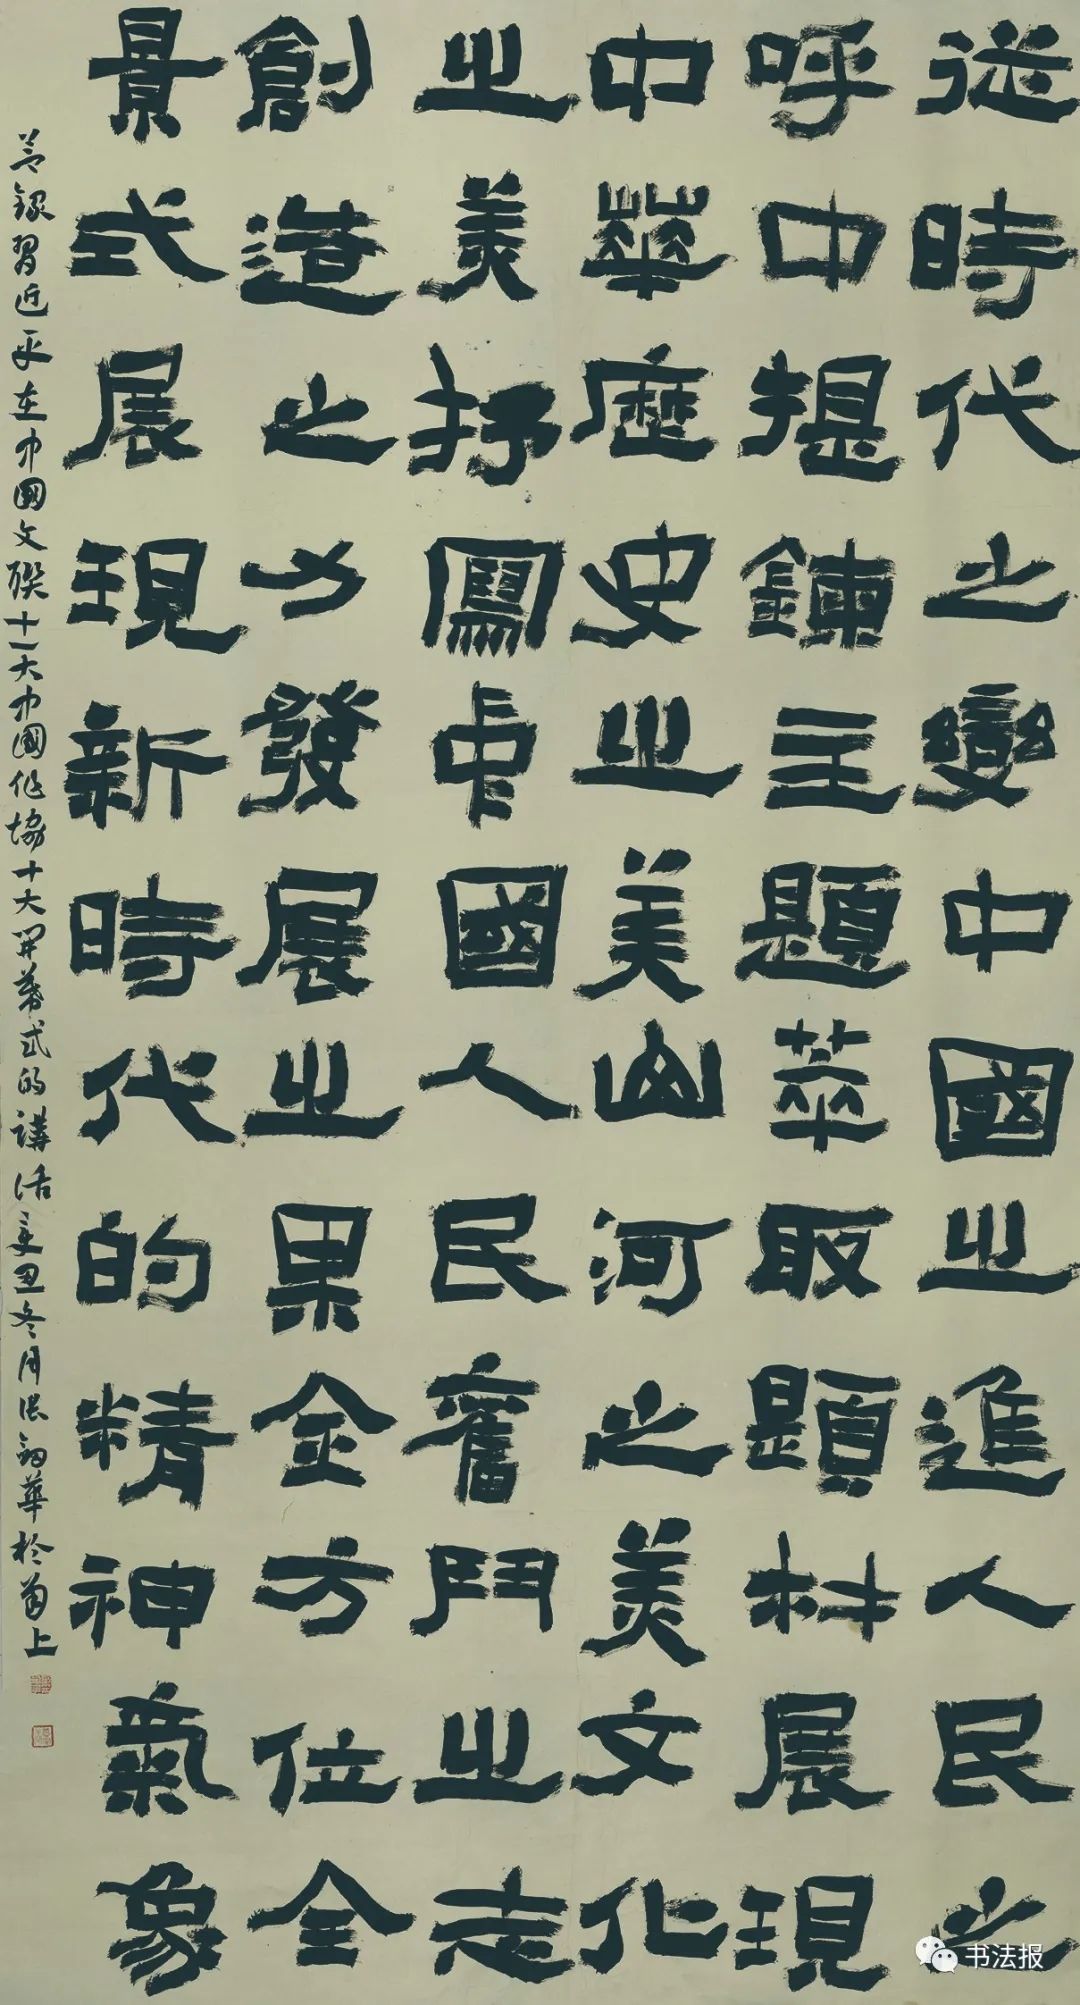 從時代之變中國之進人民之
呼中提鍊主題萃取題材展現
中華歷史之美山河之美文化
之美抒寫中國人民奮鬥之志
創造之力發展之果全方位全
景式展現新時代的精神氣象
節錄習近平在中國文聯十一大中國作協十大開幕式的講話辛丑冬月張華於上
书法报